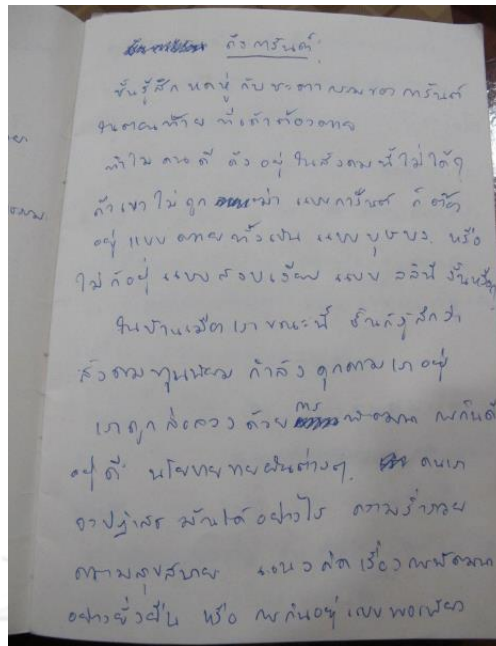 ถึงการันต์
ฉันรู้สึกหดหู่ กับชะตากรรมของการันต์
ในตอนท้าย ที่เค้าต้องตาย
ทำไม คนดี ถึงอยู่ในสังคมนี้ไม่ได้
ถ้าเขาไม่ถูก ฆ่า แบบการันต์ ก็ต้อง
อยู่แบบ ตายทั้งเป็น แบบบุษบง หรือ
ไม่ก็อยู่ แบบ แบบ
ในบ้านเมืองเราขณะนี้ ฉันก็รู้สึกว่า
สังคมทุนนิยม กำลัง คุกคามเราอยู่
เราถูกล่อลวงด้วย การพัฒนา การกินดี
อยู่ดี นโยบายขายฝันต่างๆ คนเรา
จะปฏิเสธ มันได้อย่างไร ความร่ำรวย
ความสุขสบาย แนวคิดเรื่องการพัฒนา
อย่างยั่งยืน หรือ การกินอยู่แบบพอเพียง